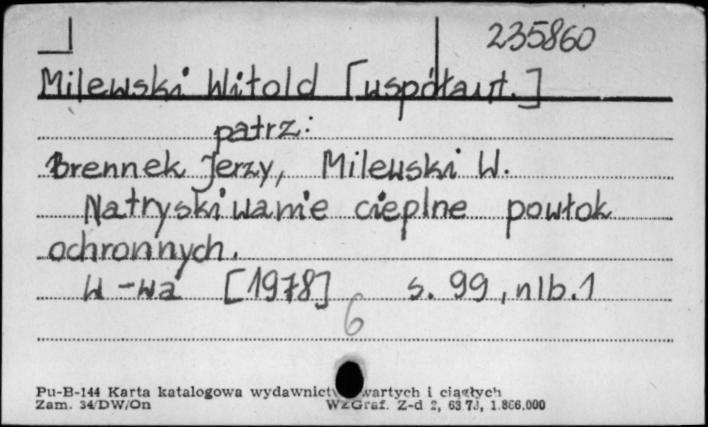 235860
Milewski Witold [współaut.]
patrz:
Brennek Jerzy, Milewski W.
Natryskiwanie cieplne powłok
ochronnych.
W-wa [1978] s. 99, nlb. 1
6
Pu-B-144 Karta katalogowa wydawnict wartych i ciągłych
Zam. 34/DW/On WZGraf. Z-d 2, 1.866.000